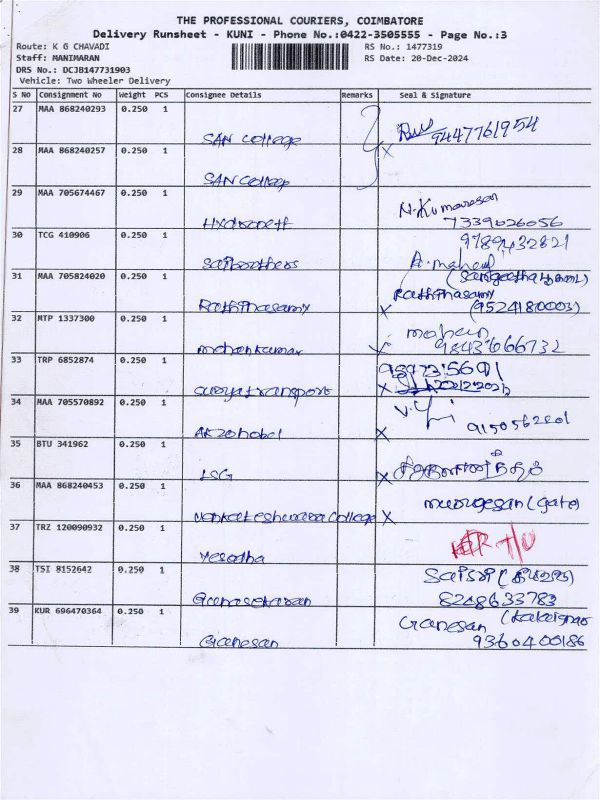 THE PROFESSIONAL COURIERS, COIMBATORE
Delivery Runsheet - KUNI - Phone No.:0422-3505555 - Page No.:3
Route: K G CHAVADI RS No.: 1477319
Staff: MANIMARAN RS Date: 20-Dec-2024
DRS No.: DCJB147731903
Vehicle: Two Wheeler Delivery
S No Consignment No Weight PCS Consignee Details Remarks Seal & Signature
27 MAA 868240293 0.250 1
SAN college 9447761954
28 MAA 868240257 0.250 1
SAN College
29 MAA 705674467 0.250 1
N.Kumaresan
7339026056
30 TCG 410906 0.250 1
9789432821
A.mahesh
31 MAA 705824020 0.250 1
Raththasamy
Raththasamy (9524180003)
32 MTP 1337300 0.250 1
mohankumar
9843666732
33 TRP 6852874 0.250 1
surya transport
34 MAA 705570892 0.250 1
Akzonobel
35 BTU 341962 0.250 1
LSG
36 MAA 868240453 0.250 1
Venkateshwara College
murugesan (gate)
37 TRZ 120090932 0.250 1
Yesotha
38 TSI 8152642 0.250 1
Gunasekaran
Saisri
8208633783
39 KUR 696470364 0.250 1
Ganesan
Ganesan
9360400186